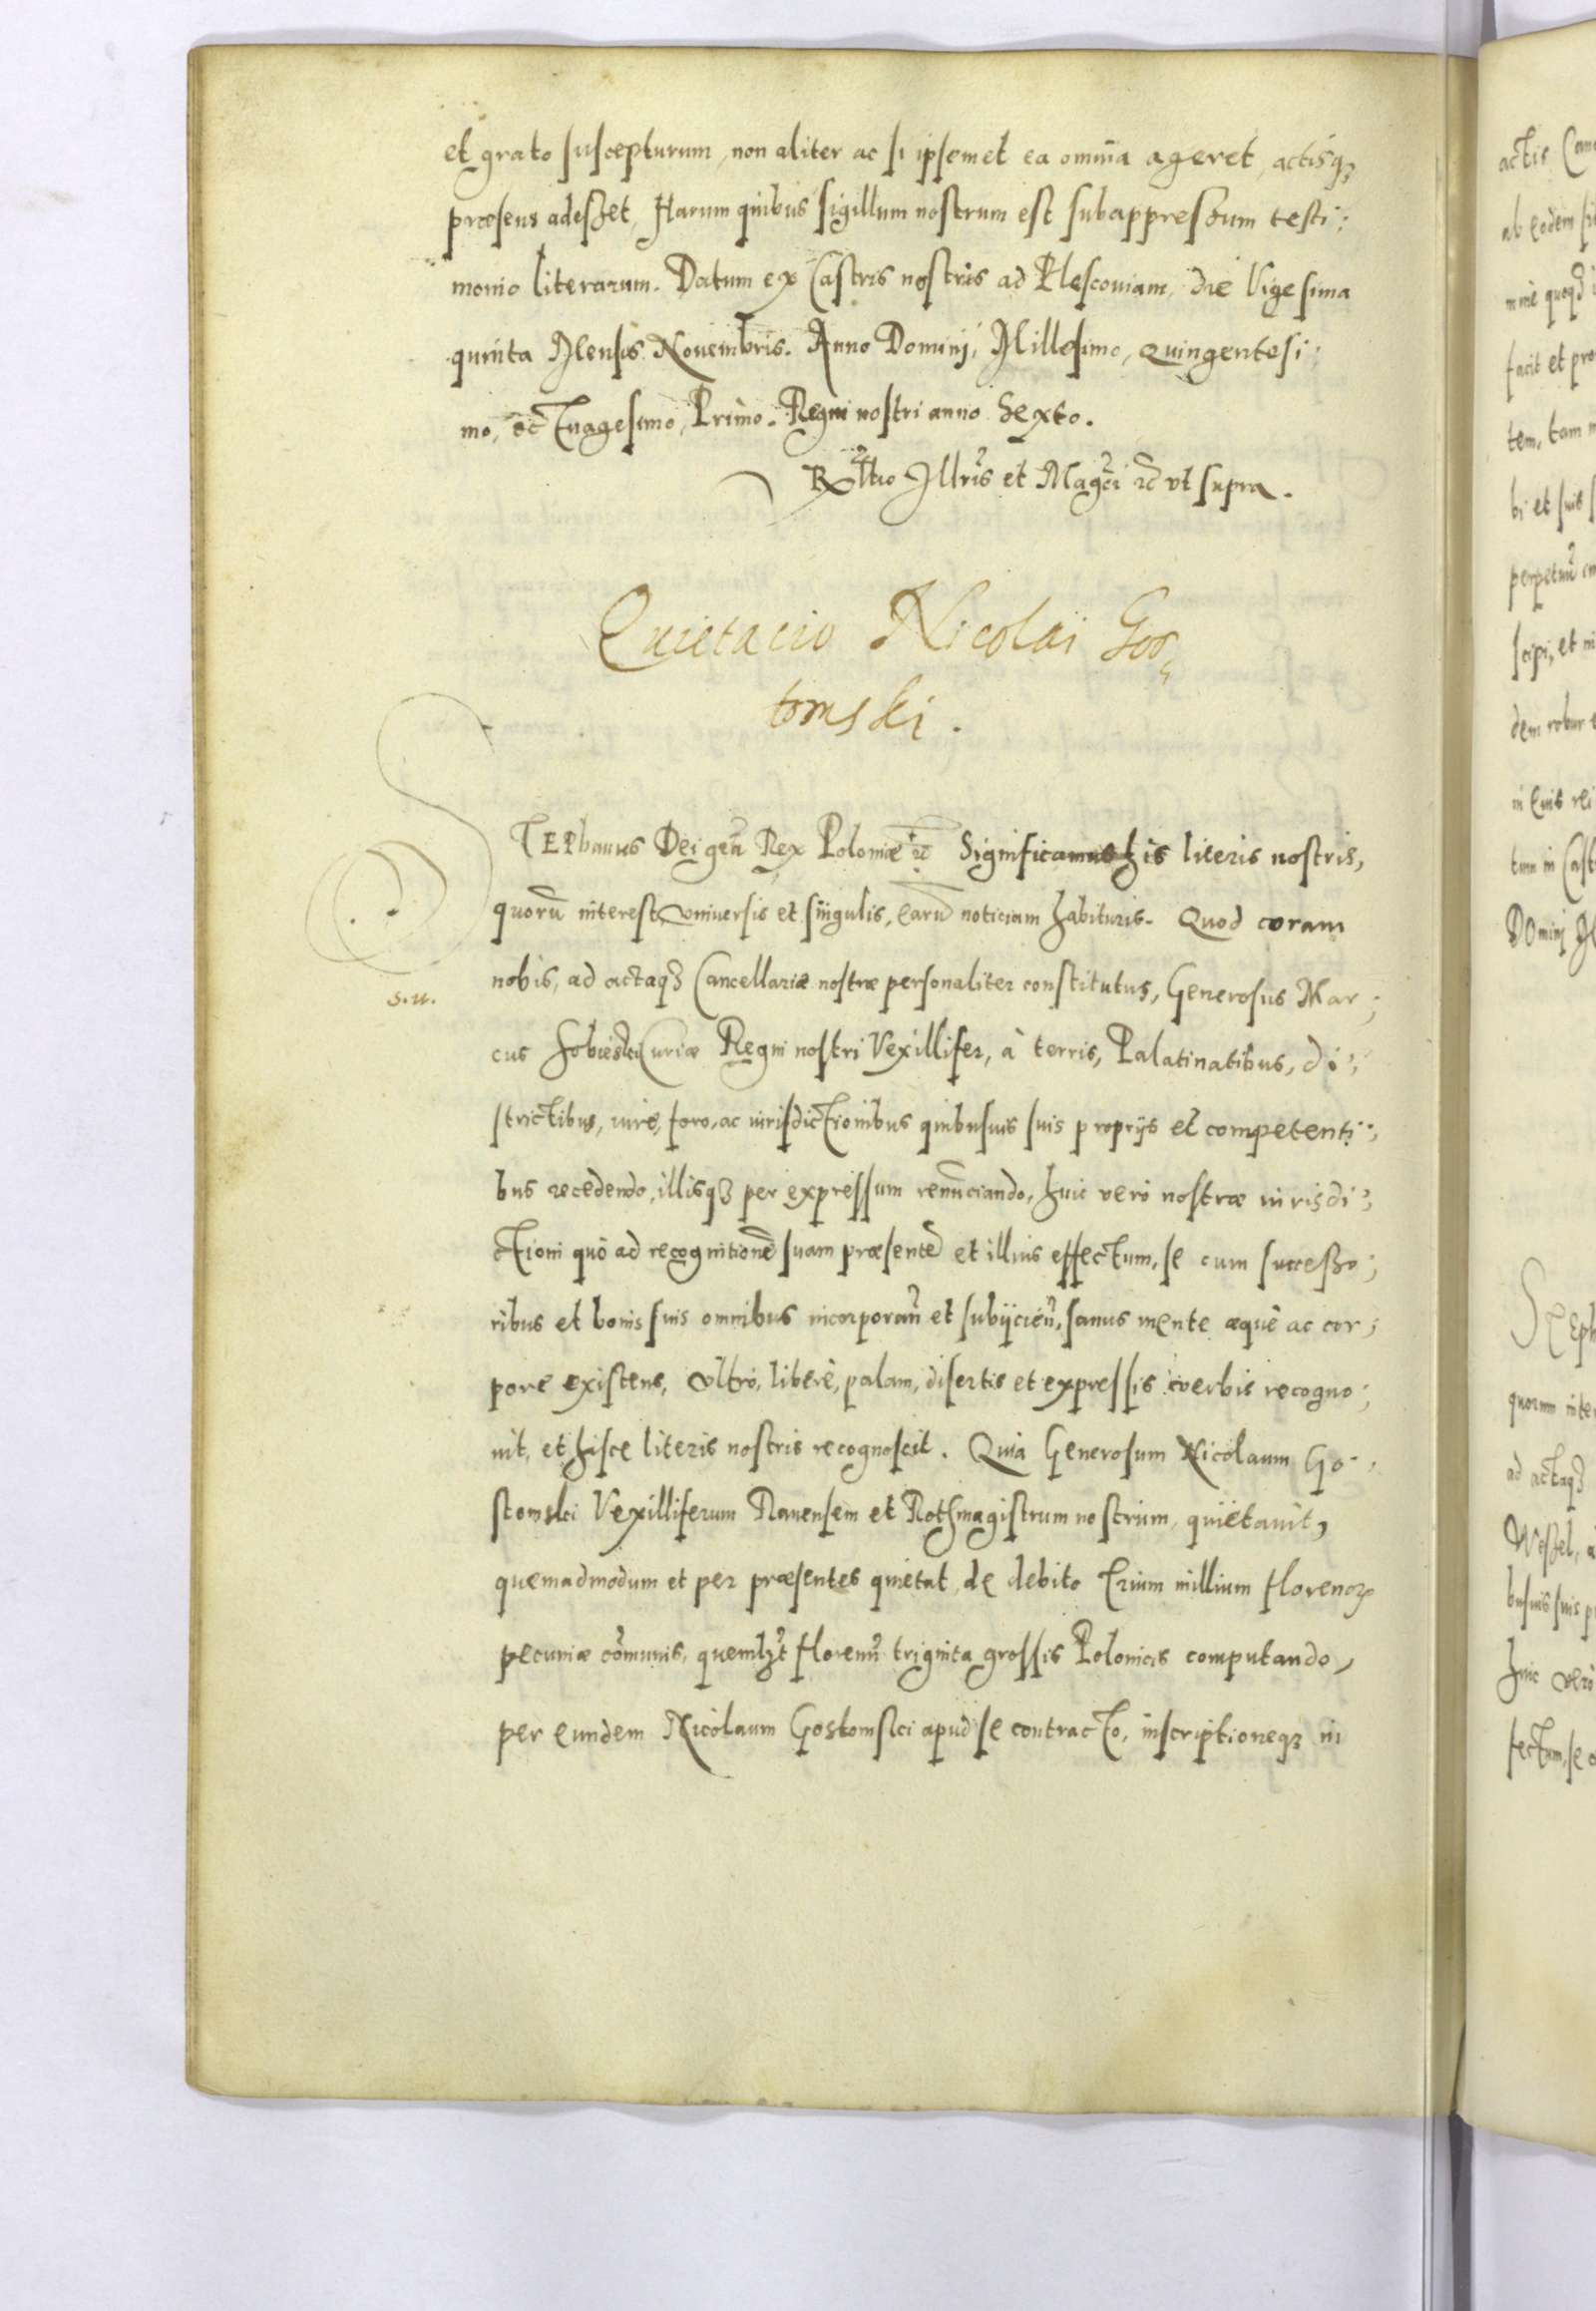 et grato suscepturum, non aliter ac si ipsemet ea omnia ageret, actisq₃
præsens adeßet, Harum quibus sigillum nostrum est subappreßum testi:
monio literarum. Datum ex Castris nostris ad Plescouiam, die Vigesima
quinta Mensis Nouembris. Anno Dominj, Millesimo, quingentesi:
mo, octuagesimo, Primo. Regni nostri anno Sexto.
Rltio Illris et Magci ꝛc vt supra.
Quietacio Nicolai Gos,
tomski.
STEPhanus Dei gra Rex Poloniæ ꝛc Significamus his literis nostris,
quorū interest, vniuersis et singulis, earū noticiam habituris. Quod coram
nobis, ad actaq₃ Cancellariæ nostræ personaliter constitutus, Generosus Mar;
s.u.
cus Sobieski Curiæ Regni nostri Vexillifer, à terris, Palatinatibus, di;
strictibus, iure, foro, ac iurisdictionibus quibusuis suis proprijs et competenti;
bus recedendo, illisq₃ per expressum renunciando, huic verò nostræ iurisdi;
ctioni quo ad recognitionē suam præsentē et illius effectum, se cum successo;
ribus et bonis suis omnibus incorporan̄ et subijcien̄, sanus mente æquè ac cor;
pore existens, vltrò, liberè, palam, disertis et expressis verbis recogno;
uit, et hisce literis nostris recognoscit. Quia Generosum Nicolaum Go-
stomski Vexilliferum Rauensem et Rothmagistrum nostrum, quietauit,
quemadmodum et per præsentes quietat, de debito trium millium florenoꝝ
pecuniæ cōmunis, quemlzt florenū triginta grossis Polonicis computando,
per eundem Nicolaum Gostomski apud se contracto, inscriptioneq₃ in
actis Canc
mine quoq₃
facit et pro
tem, tam
bi et suis
scipi, et
dem robur
in Cast
Dominj
Steph
quorum inte
ad actaq₃
Weßel, a
busuis suis p
huic verò
fectum, se